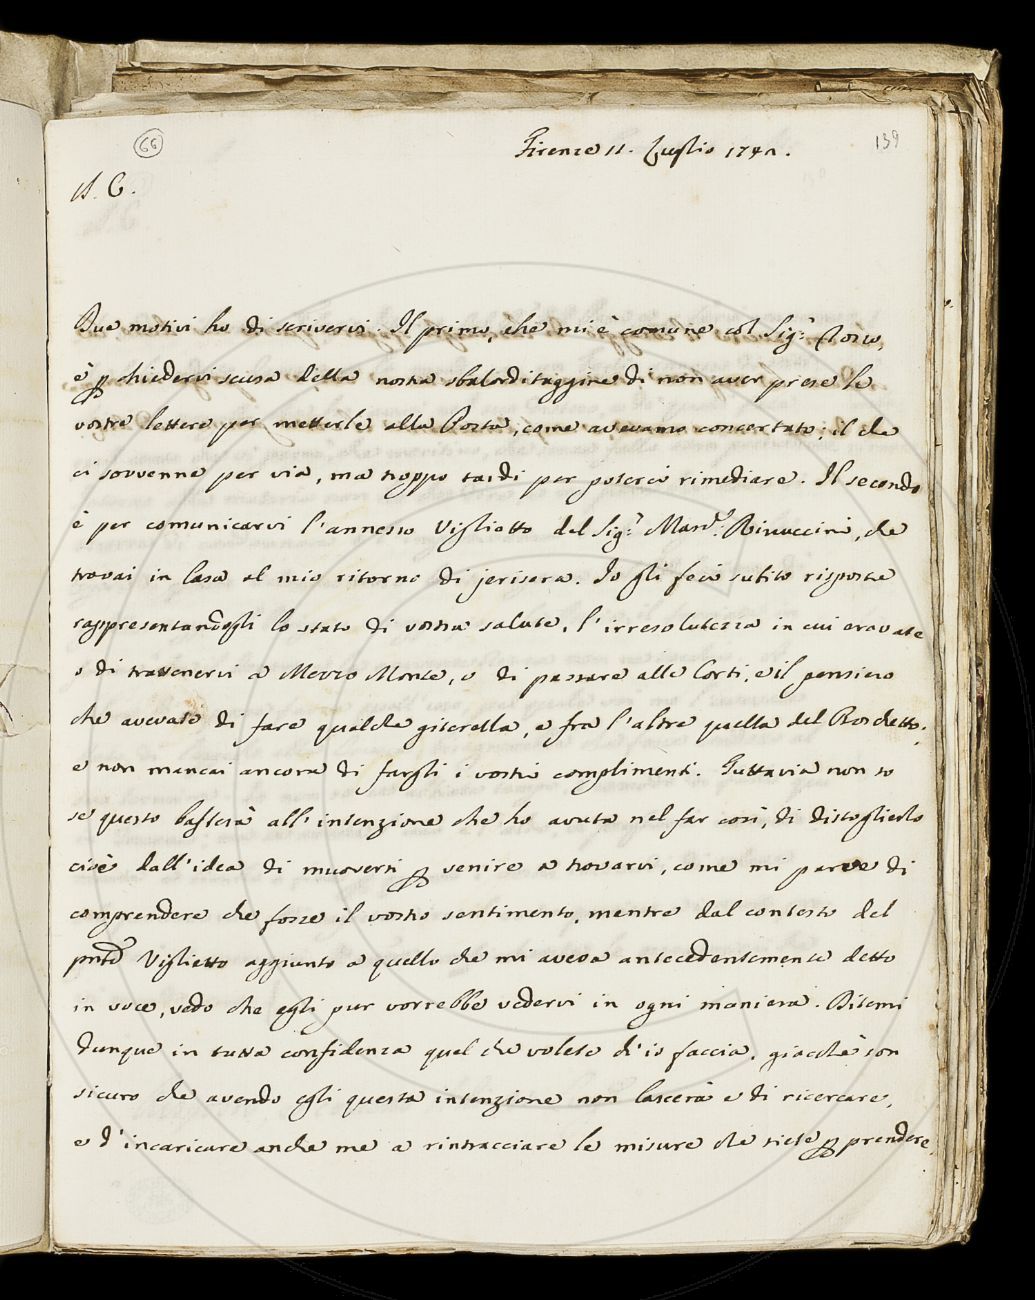 66
Firenze 11. Luglio 174
139
A. C.
Due motivi ho di scrivervi. Il primo, che mi è comune col Sig:r
è p chiedervi scusa della nostra sbalorditaggine di non aver prese le
vostre lettere per metterle alla Posta, come avevamo concertato; il che
ci sovvenne per via, ma troppo tardi per poterci rimediare. Il secondo
è per comunicarvi l'annesso Viglietto del Sig:r Mar Rinuccini, che
trovai in Casa al mio ritorno di jerisera. Io gli feci subito risposta
rappresentandogli lo stato di vostra salute, l'irresolutezza in cui eravate
o di trattenervi a Mezzo Monte, o di passare alle Corti, e il pensiero
che avevate di fare qualche giterella, e fra l'altre quella del Boschetto;
e non mancai ancora di fargli i vostri complimenti. Tuttavia non so
se questo basterà all'intenzione che ho avuta nel far così, di distoglierlo
cioè dall'idea di muoversi p venire a trovarvi, come mi parve di
comprendere che fosse il vostro sentimento, mentre dal contesto del
pnte Viglietto aggiunto a quello che mi aveva antecedentemente detto
in voce, vedo che egli pur vorrebbe vedervi in ogni maniera. Ditemi
dunque in tutta confidenza quel che volete ch'io faccia, giacchè son
sicuro che avendo egli questa intenzione non lascerà e di ricercare,
e d'incaricare anche me a rintracciare le misure che siete p prendere.